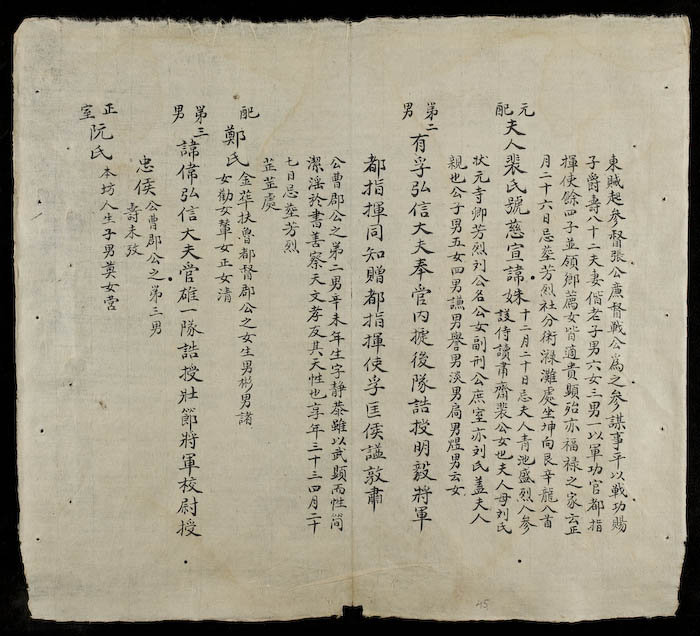 東賊起參督張公廉督戰公為之參謀事平以戰功賜
子爵壽八十二夫妻偕老子男六女三男一以軍功官都指
揮使餘四子並領鄉薦女皆適貴顯殆亦福祿之家云正
月二十六日忌塟芳烈社分術漉灘處坐坤向艮辛龍入首
元配
夫人裴氏號慈宣諱姝
十二月二十日忌夫人青池盛烈人參
議侍讀肅齋裴公女也夫人母刘氏
狀元寺卿芳烈刘公名公女副刑公庶室亦刘氏蓋夫人
親也公子男五女四男譓男譽男淡男扃男煜男云女
第二男
有孚弘信大夫奉管内捷後隊誥授明毅將軍
都指揮同知贈都指揮使孚匡侯謚敦肅
公曹郡公之第二男辛未年生字靜恭雖以武顯而性簡
潔滛於書善察天文孝友其天性也享年三十三四月二十
七日忌塟芳烈
芷芷處
配
鄭氏
金華扶魯都督郡公之女生男彬男諸
女勸女輦女正女清
第三男
諱偉弘信大夫管雄一隊誥授壯節將軍校尉授
忠侯
公曹郡公之第三男
壽未攷
正室
阮氏
本坊人生子男蓂女營
45